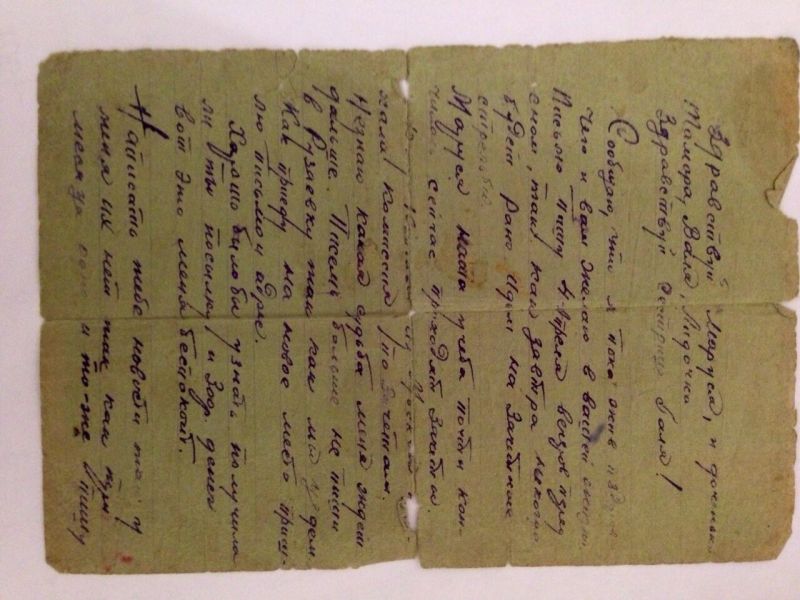 Здравствуй Маруся, и доченьки
Тамара, Валя, Лидочка
Здравствуй сестрица Галя!
Сообщаю, что я пока жив и здоров
чего и вам желаю в вашей жизни.
Письмо пишу 4 Апреля вечером перед
сном, так как завтра некогда
будет рано идем на зачетные
стрельбы.
Маруся наша учеба почти кон-
чилась сейчас проходят зачеты.
из Москвы
хала! комиссия по зачетам.
Незнаю какая судьба меня ждет
дальше. Писем больше не пиши
в Рузаевку так как мы уедем
Как приеду на новое место приш-
лю письмо и адрес.
Хорошо было бы узнать получила
ли ты посылку, и 300 денег
вот это меня беспокоит.
Написать тебе новости то у
меня их нет так как три
месяца одно и то-же пишу